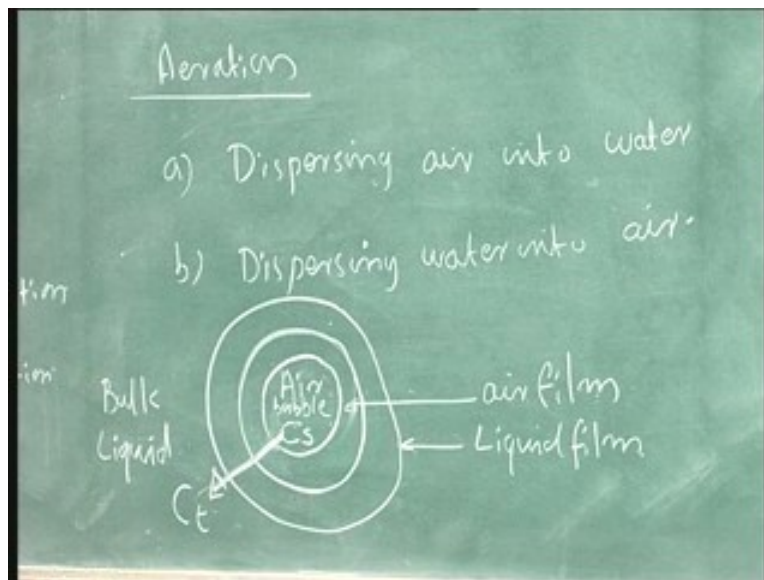 Aeration
a) Dispersing air into water
b) Dispersing water into air.
Bulk
Liquid
Air
bubble
Cs
Ct
air film
Liquid film